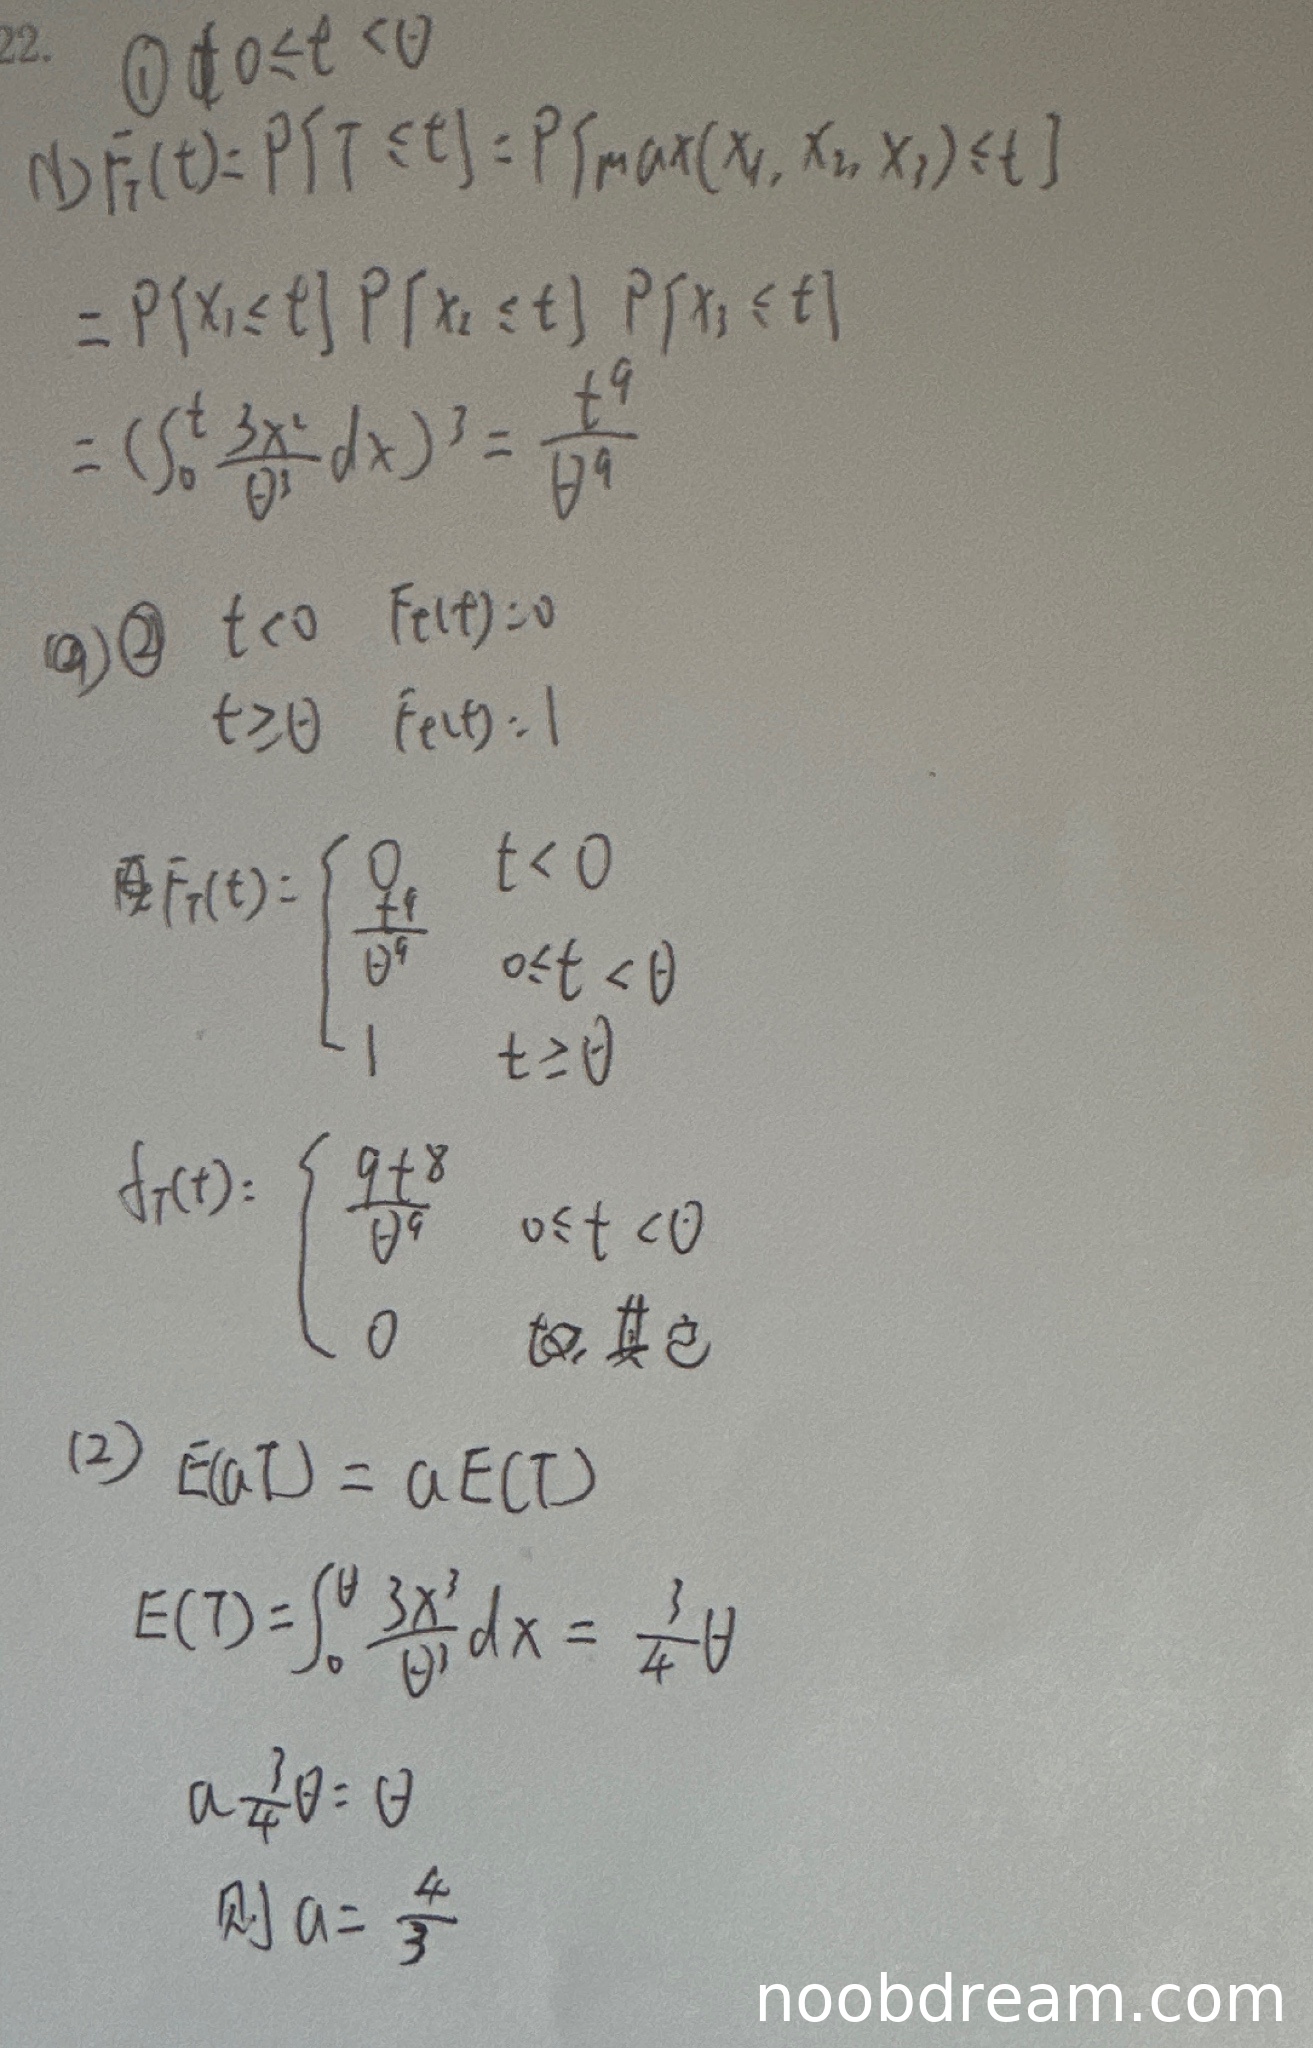 22.
① 0≤t<θ
(1) F_T(t)=P{T≤t}=P{max(x₁, x₂, x₃)≤t}
=P{x₁≤t}P{x₂≤t} P{x₃≤t}
=(∫₀ᵗ 3x²/θ³ dx)³ = t⁹/θ⁹
② t<0 F_t(t)=0
t≥θ F_t(t)=1
F_T(t)= { 0 t<0
t⁹/θ⁹ 0≤t<θ
1 t≥θ
f_T(t)= { 9t⁸/θ⁹ 0≤t<θ
0 其它
(2) E(aT) = aE(T)
E(T)=∫₀^θ 3x³/θ³ dx = 3/4 θ
a 3/4 θ = θ
则 a = 4/3
noobdream.com